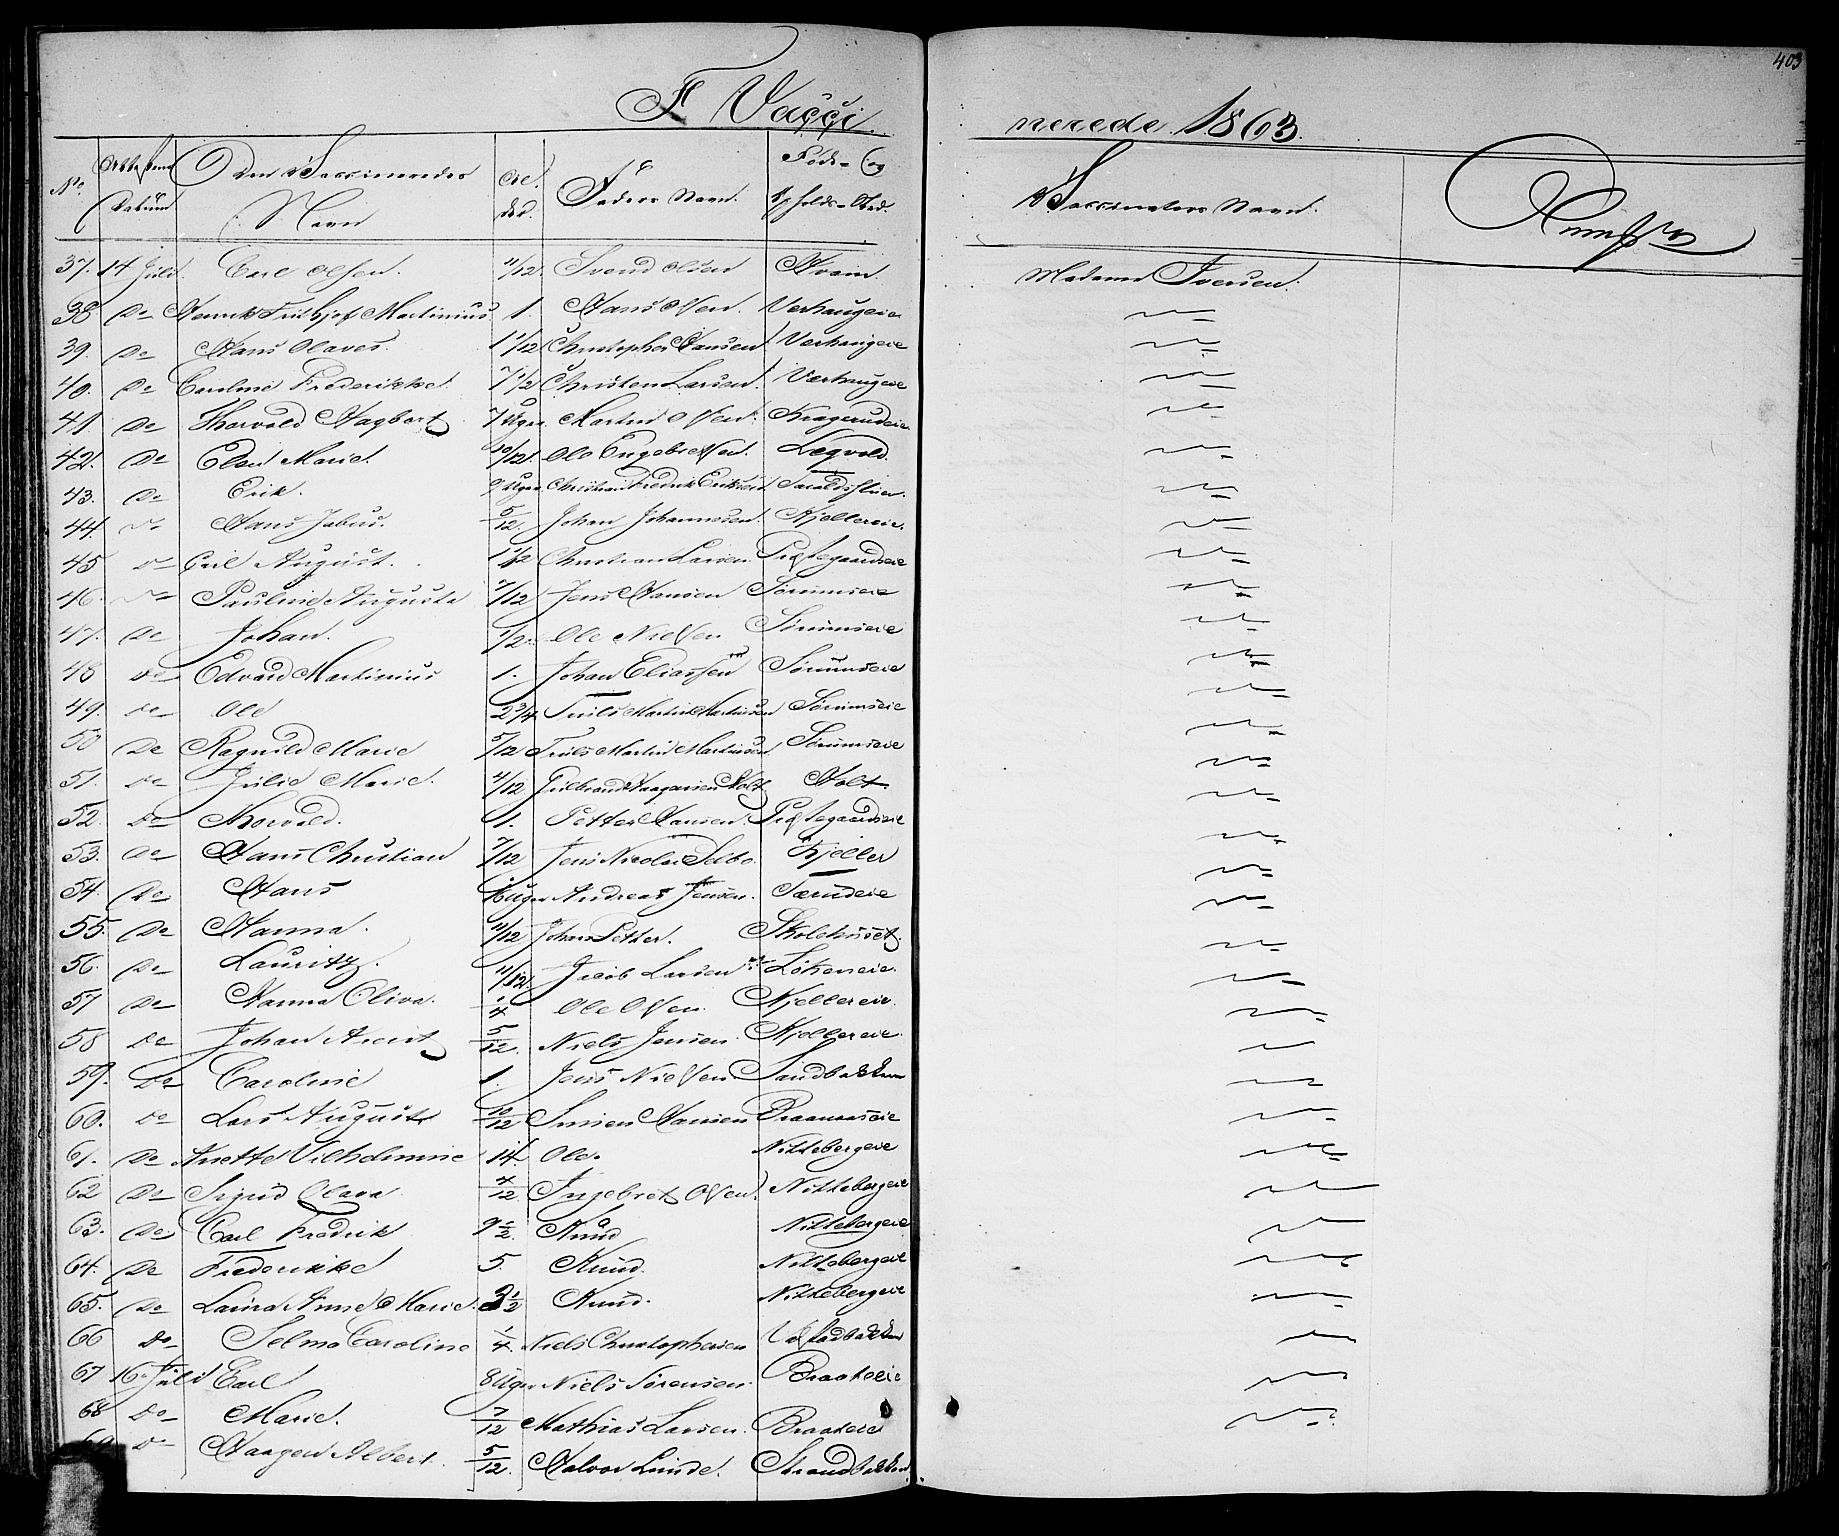 403
F Vacci nerede 1863.
No. Attestens Datum Den Vaccineredes Navn Alder. Faders Navn. Føde- og Opholds-Sted. Vaccinateurs Navn. Anmkn
37. 14 Juli. Carl Olsen. 11/12 Svend Olsen Hvam. Madame Iversen.
38 Do Henrik Frithjof Martinius 1. Hans Olsen. Verhaugeie
39. Do Hans Olaves. 1 11/12 Christopher Hansen Verhaugeie
40. Do Caroline Frederikke. 7 1/2 Christen Larsen. Værhaugeie
41 Do Thorvald Dagbart 7 Uger. Martin Olsen. Kragerudeie
42. Do Elen Marie. 10/12. Ole Engebretsen. Leqvold.
43. Do Erik. 9 Uger. Christian Fredrik Eriksen
44. Do Hans Julius. 5/12. Johan Johannesen. Kjellereie.
45 Do Carl August. 1 1/2 Christian Larsen. Præstegaardseie
46. Do Pauline Augusta 7/12 Jens Hansen Sørumseie
47. Do Johan. 1/2. Ole Nielsen Sørumseie
48 Do Edvard Martinius 1. Johan Eliassen Sørumseie
49. Do Ole 2 3/4 Truls Martin Martinsen Sørumseie
50 Do Ragnild Marie 5/12 Truls Martin Martinsen Sørumseie
51. Do Julie Marie. 11/12 Gulbrand Haagensen Holt Holt.
52. Do Thorvald. 1. Petter Hansen. Præstegaardseie
53. Do Hans Christian 7/12 Jens Nicolai Selbo. Kjeller
54. Do Hans Uger Andreas Jensen. Tærudeie
55. Do Hanna. 11/12 Johan Petter. Skolehuset.
56. Do Lauritz. 11/12 Jacob Larsen Løkeneie.
57 Do Hanna Oliva. 1/4 Ole Olsen. Kjellereie.
58 Do Johan Arent 5/12. Niels Jensen. Kjellereie.
59. Do Caroline 1. Jens Nielsen Sandbakken
60. Do Lars August 10/12 Simen Hansen Braanaaseie
61. Do Anette Vilhelmine 14. Ole. Nittebergeie
62 Do Sigrid Olava 4/12 Ingebret Olsen. Nittebergeie
63. Do Carl Fredrik 9 1/2 Knud Nittebergeie
64. Do Frederikke 5. Knud. Nittebergeie
65. Do Laura Anne Marie. 3 1/2 Knud. Nittebergeie
66 Do Selma Caroline 1/4. Niels Christophersen Vestadbakken
67 16 Juli Carl 8 Uger Niels Sørensen. Braateeie
68 Do Marie. 7/12 Mathias Larsen. Braateeie
69 Do Haagen Albert. 5/12. Halvor Lunde. Strandbakken